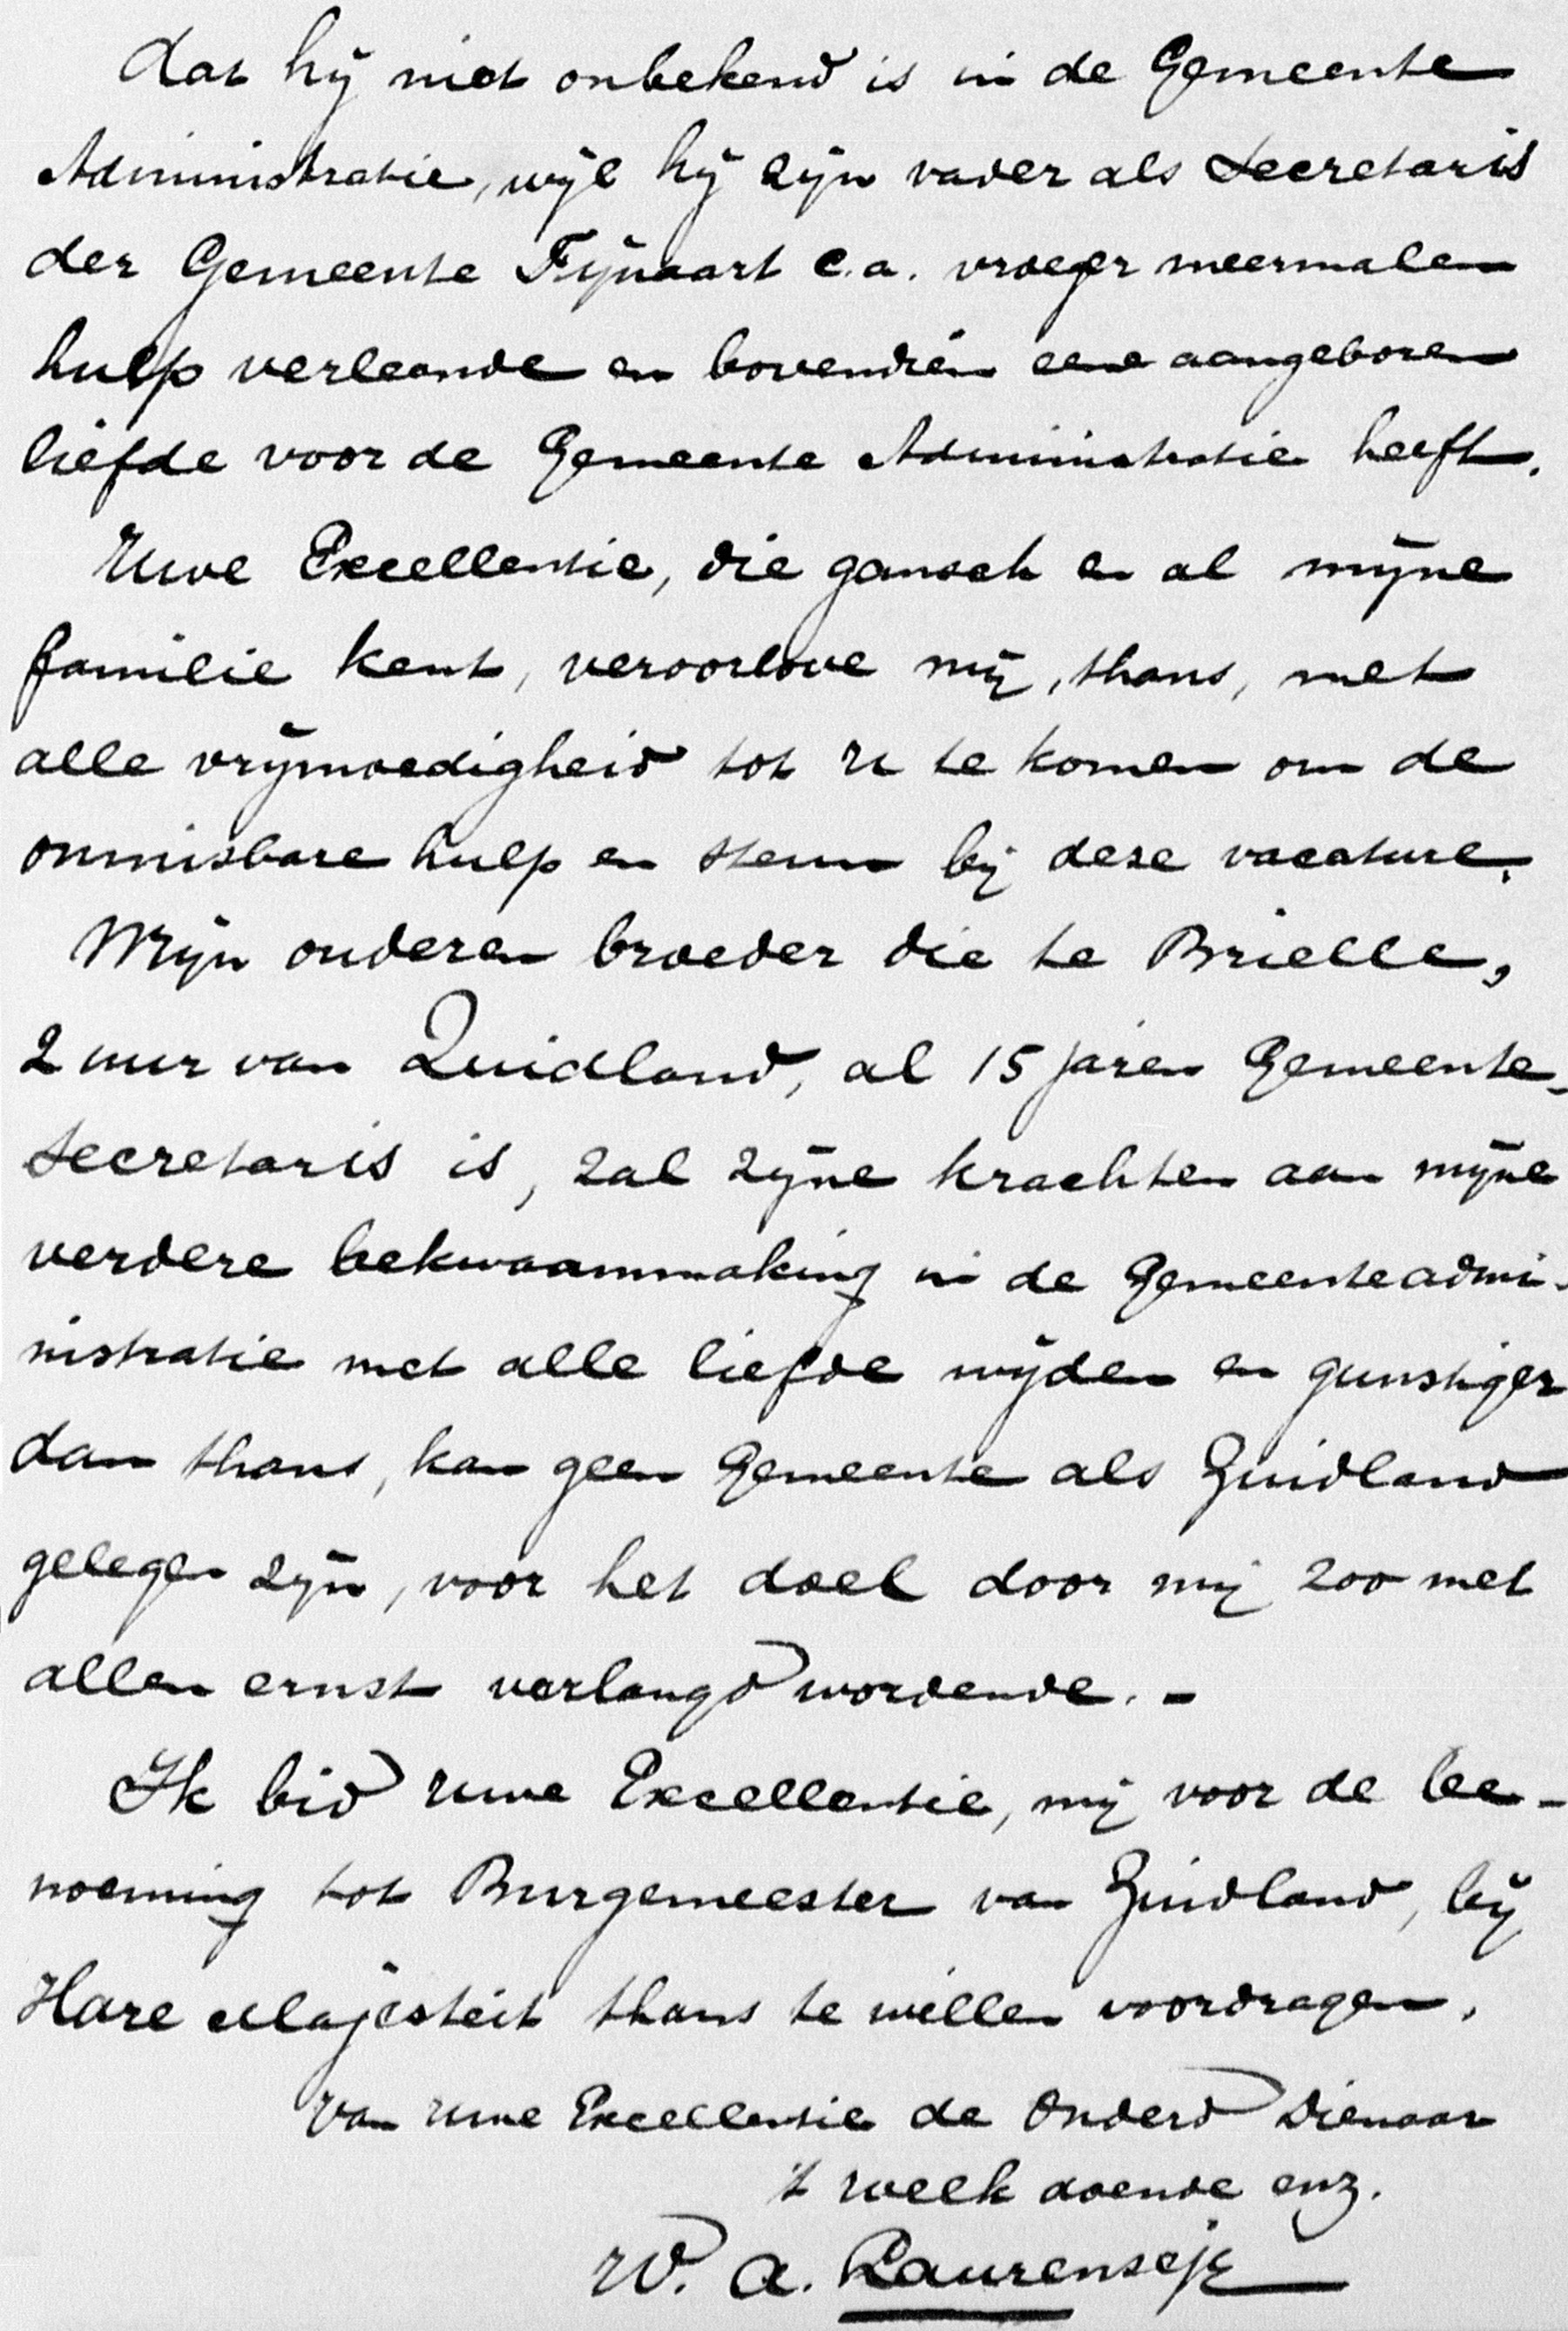 dat hij niet onbekend is in de Gemeente
Administratie, wijl hij zijn vader als Secretaris
der Gemeente Fijnaart c.a. vroeger meermalen
hulp verleende en bovendien eene aangeboren
liefde voor de Gemeente Administratie heeft.
Uwe Excellentie, die gansch en al mijne
familie kent, veroorlove mij, thans, met
alle vrijmoedigheid tot U te komen om de
onmisbare hulp en steun bij deze vacature.
Mijn ouderen broeder die te Brielle,
2 uur van Zuidland, al 15 jaren Gemeente-
Secretaris is, zal zijne krachten aan mijne
verdere bekwaammaking in de Gemeenteadmi-
nistratie met alle liefde wijden en gunstiger
dan thans, kan geen Gemeente als Zuidland
gelegen zijn, voor het doel door mij zoo met
allen ernst verlangd wordende. -
Ik bid Uwe Excellentie, mij voor de be-
noeming tot Burgemeester van Zuidland, bij
Hare Majesteit thans te willen voordragen.
Van Uwe Excellentie de Onderd Dienaar
't welk doende enz.
W. A. Laurensse